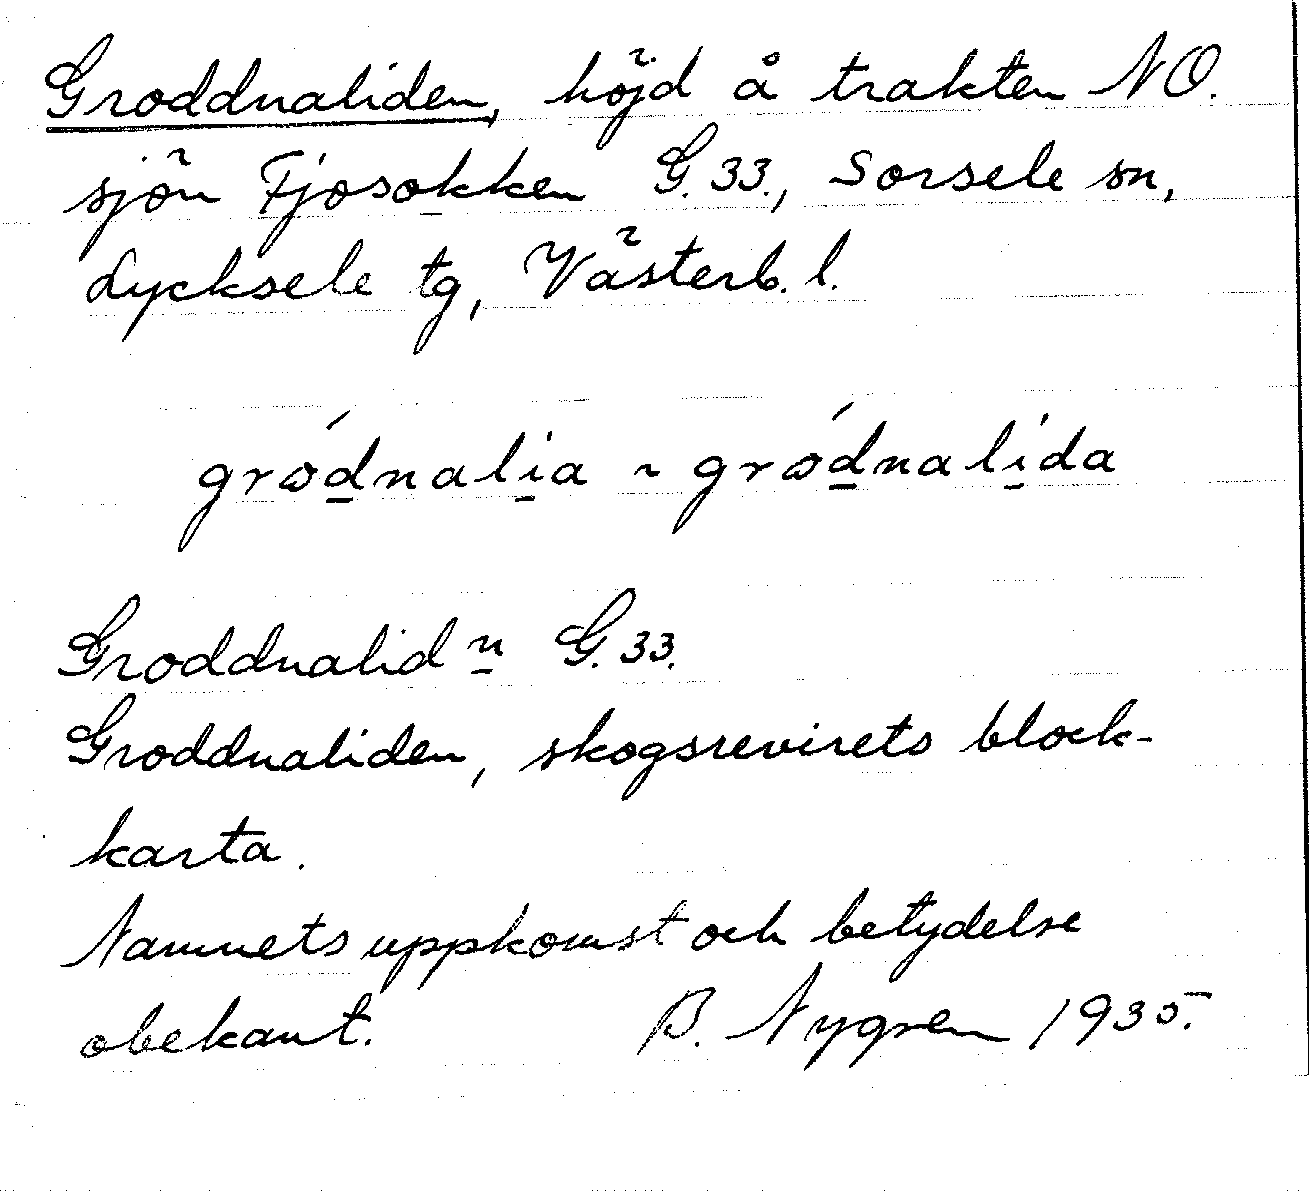 Groddnaliden, höjd å trakten NO.
sjön Fjosokken G. 33., Sorsele sn,
Lycksele tg, Västerb. l.
grodnalia ~ grodnalida
Groddnalid n G. 33.
Groddnaliden, skogsrevirets block-
karta.
Namnets uppkomst och betydelse
obekant. B. Nygren 1935.